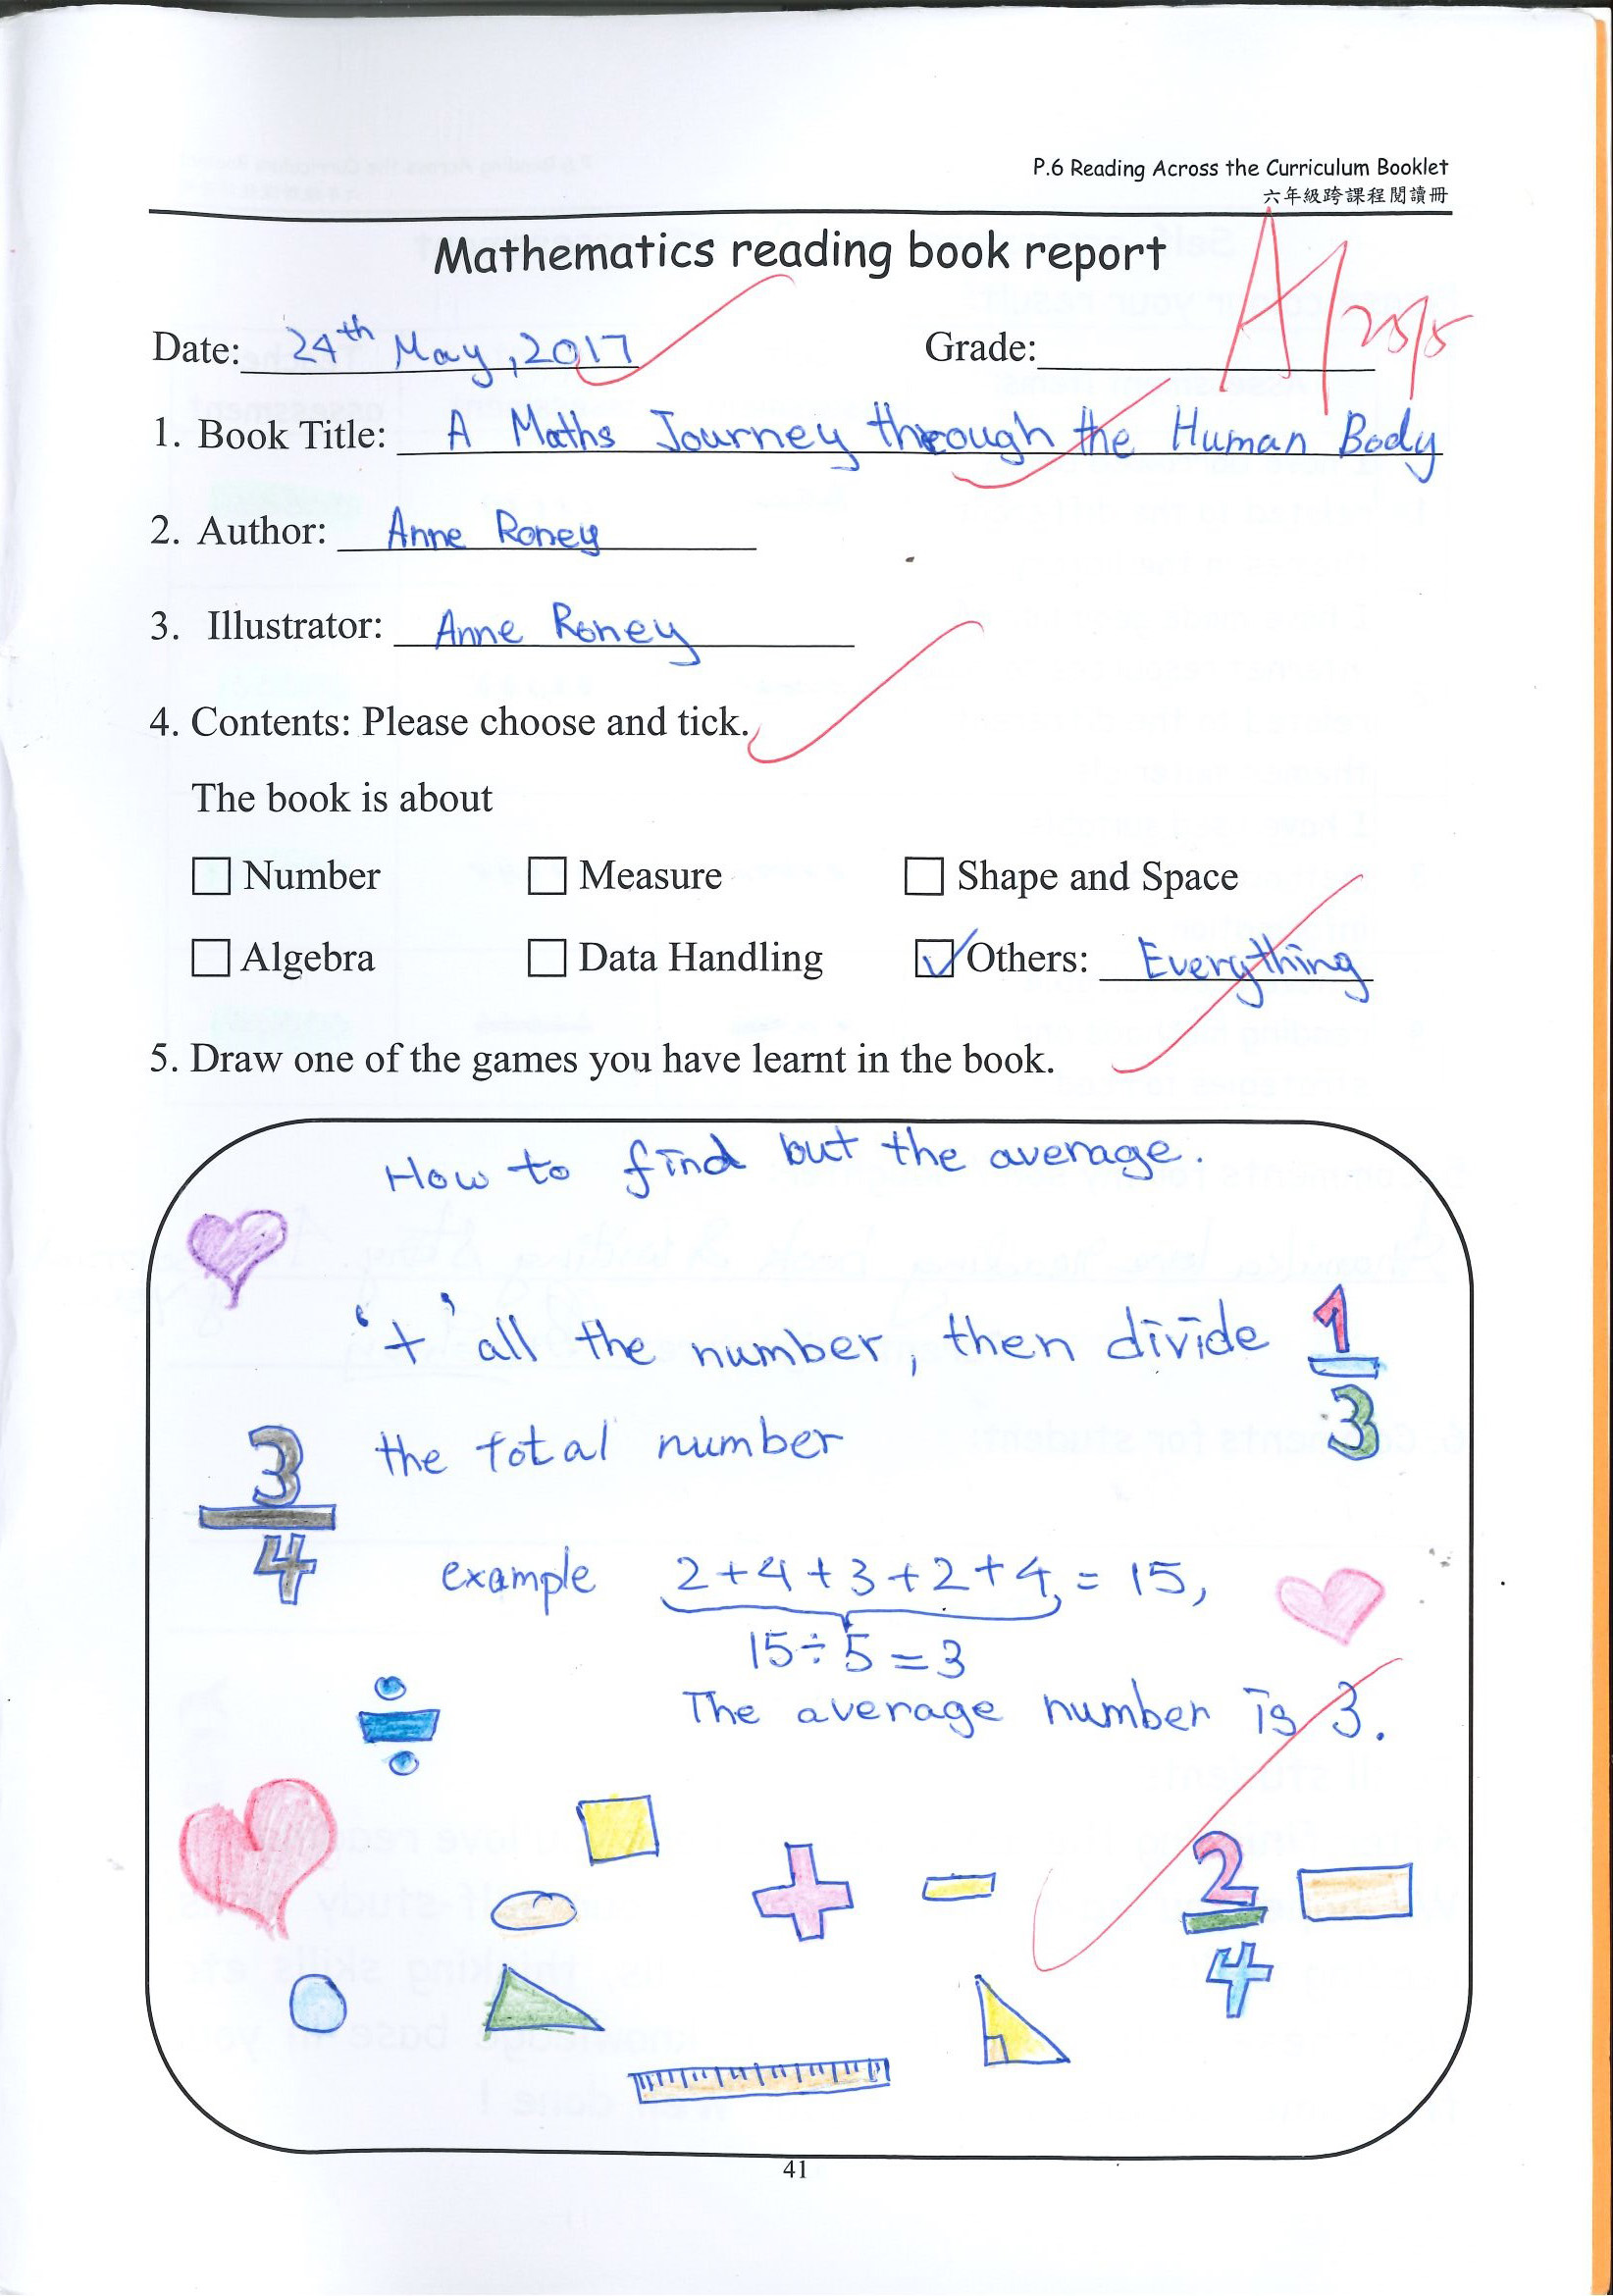 P.6 Reading Across the Curriculum Booklet
六年級跨課程閱讀冊
Mathematics reading book report
Date: 24th May, 2017 Grade: A 25/5
1. Book Title: A Maths Journey through the Human Body
2. Author: Anne Roney
3. Illustrator: Anne Roney
4. Contents: Please choose and tick.
The book is about
Number Measure Shape and Space
Algebra Data Handling Others: Everything
5. Draw one of the games you have learnt in the book.
How to find but the average.
'+' all the number, then divide
1
3
the total number
3
4
example 2+4+3+2+4 = 15,
15÷5=3
The average number is 3.
÷
+ −
2
4
41